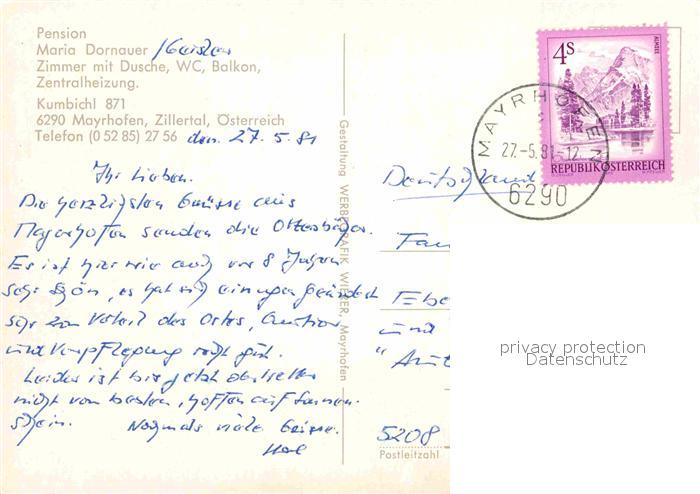 Pension
Maria Dornauer
Zimmer mit Dusche, WC, Balkon,
Zentralheizung.
Kumbichl 871
6290 Mayrhofen, Zillertal, Österreich
Telefon (0 52 85) 27 56 den 27.5.81
Ihr Lieben.
Die herzlichsten Grüsse aus
Mayerhofen senden die
Es ist hier wie auch vor 8 Jahren
sehr schön, es hat sich einiges geändert
sehr zum Vorteil des Ortes,
und Verpflegung recht gut.
Leider ist bis jetzt das Wetter
nicht vom besten, hoffen auf Sonnen-
schein. Nochmals viele Grüsse.
Gestaltung WERBEGRAFIK WIESER, Mayrhofen
4S
ALMSEE
REPUBLIK ÖSTERREICH
MAYRHOFEN
27.-5.81-12
6290
Deutschland
Fam
Ebe
und
5208
Postleitzahl
privacy protection
Datenschutz